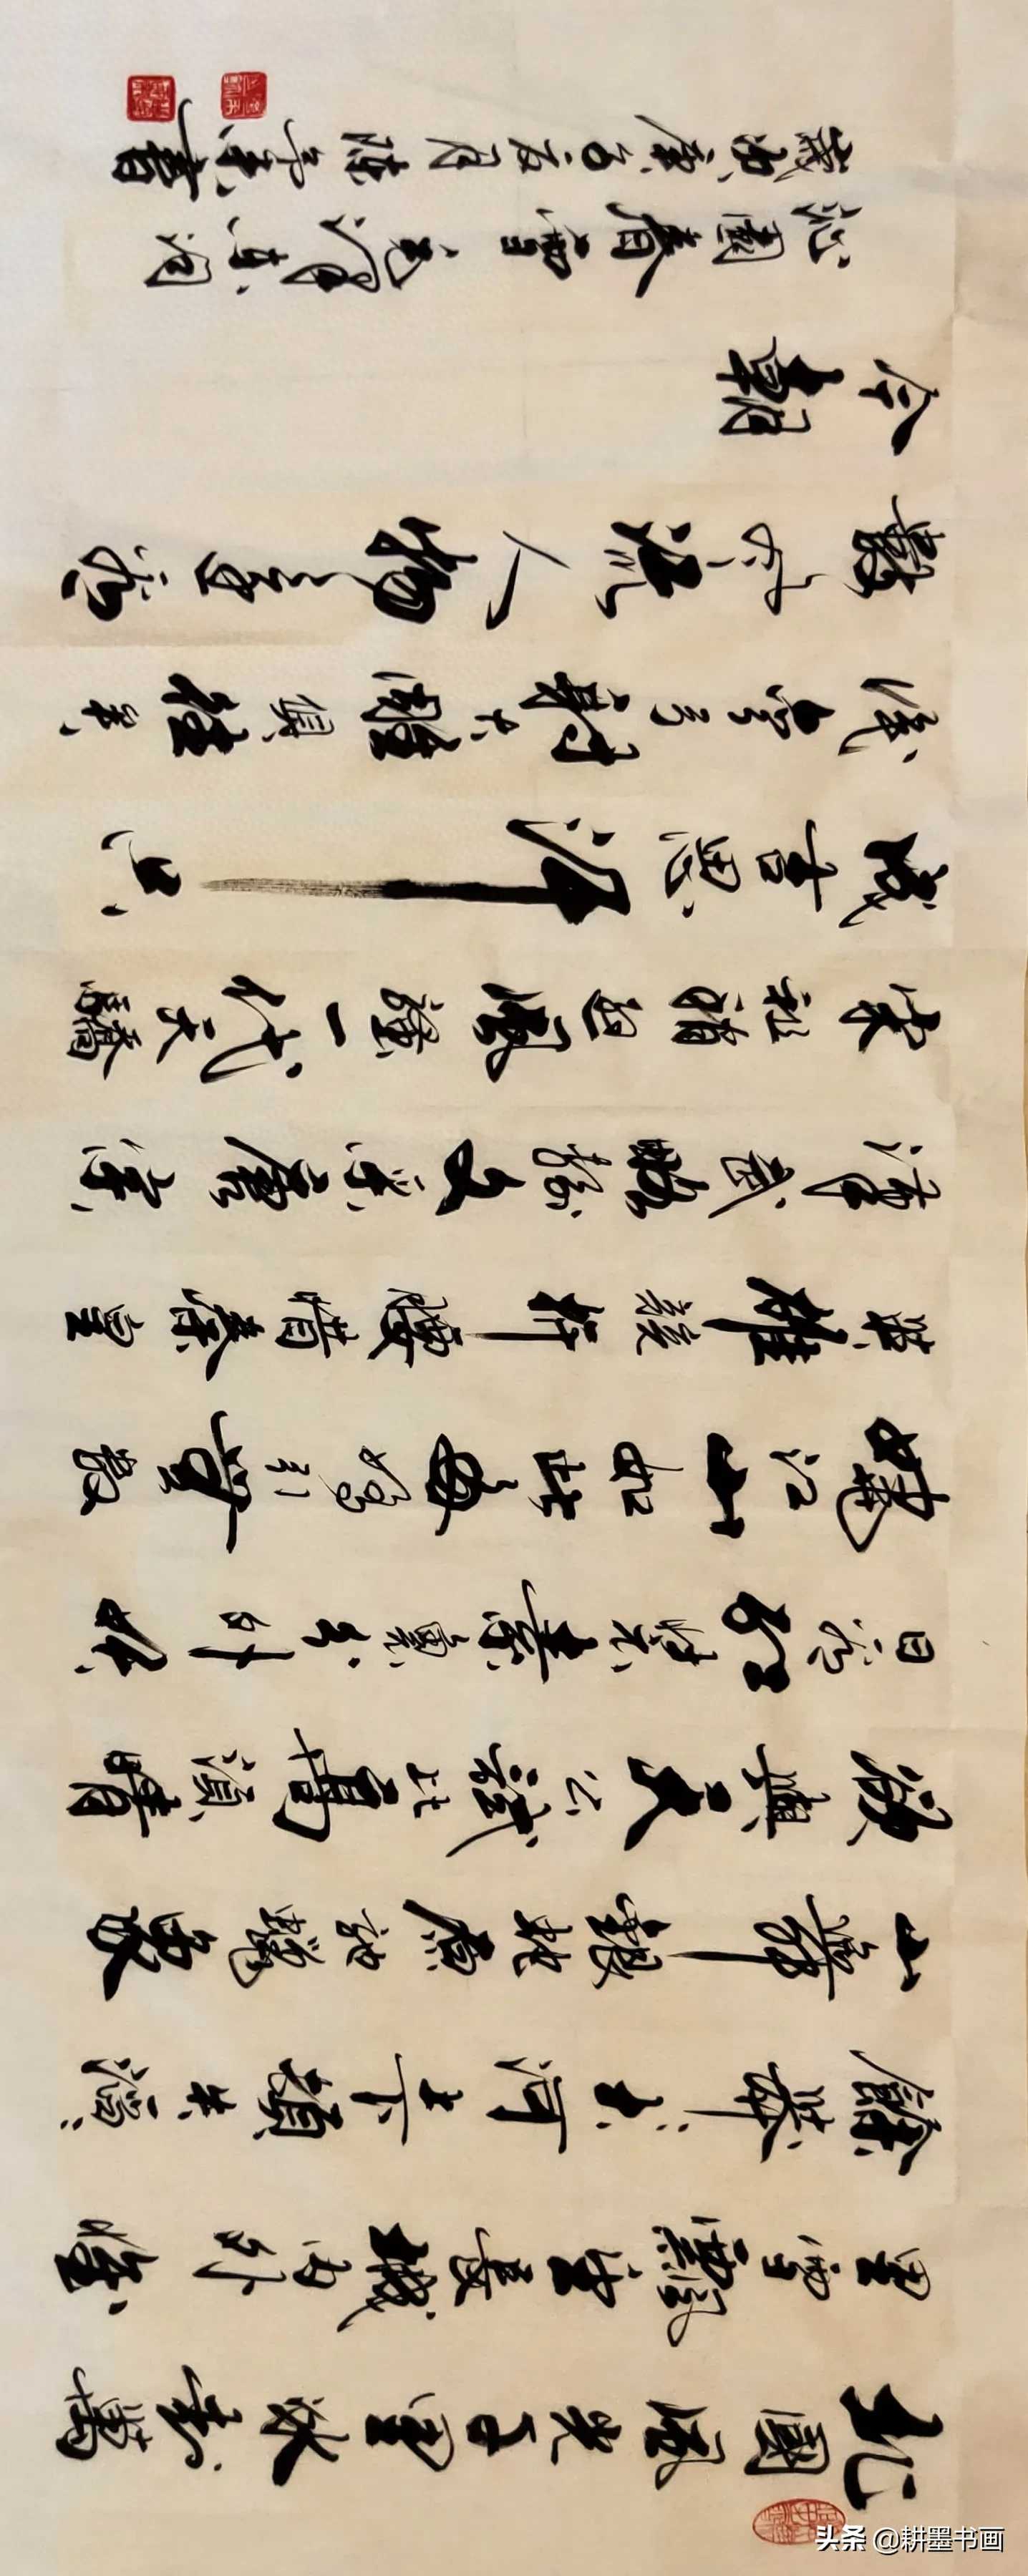 北國風光千里冰封萬
里雪飄望長城内外惟
餘莽莽大河上下頓失滔滔
山舞銀蛇原馳蠟象
欲與天公試比高須晴
日看紅裝素裹分外妖
嬈江山如此多嬌引無數
英雄競折腰惜秦皇
漢武略輸文采唐宗
宋祖稍遜風騷一代天驕
成吉思汗只
識彎弓射大雕俱往矣
數風流人物還看
今朝
沁園春雪毛澤東詞
歲次庚子五月書
头条 @耕墨书画